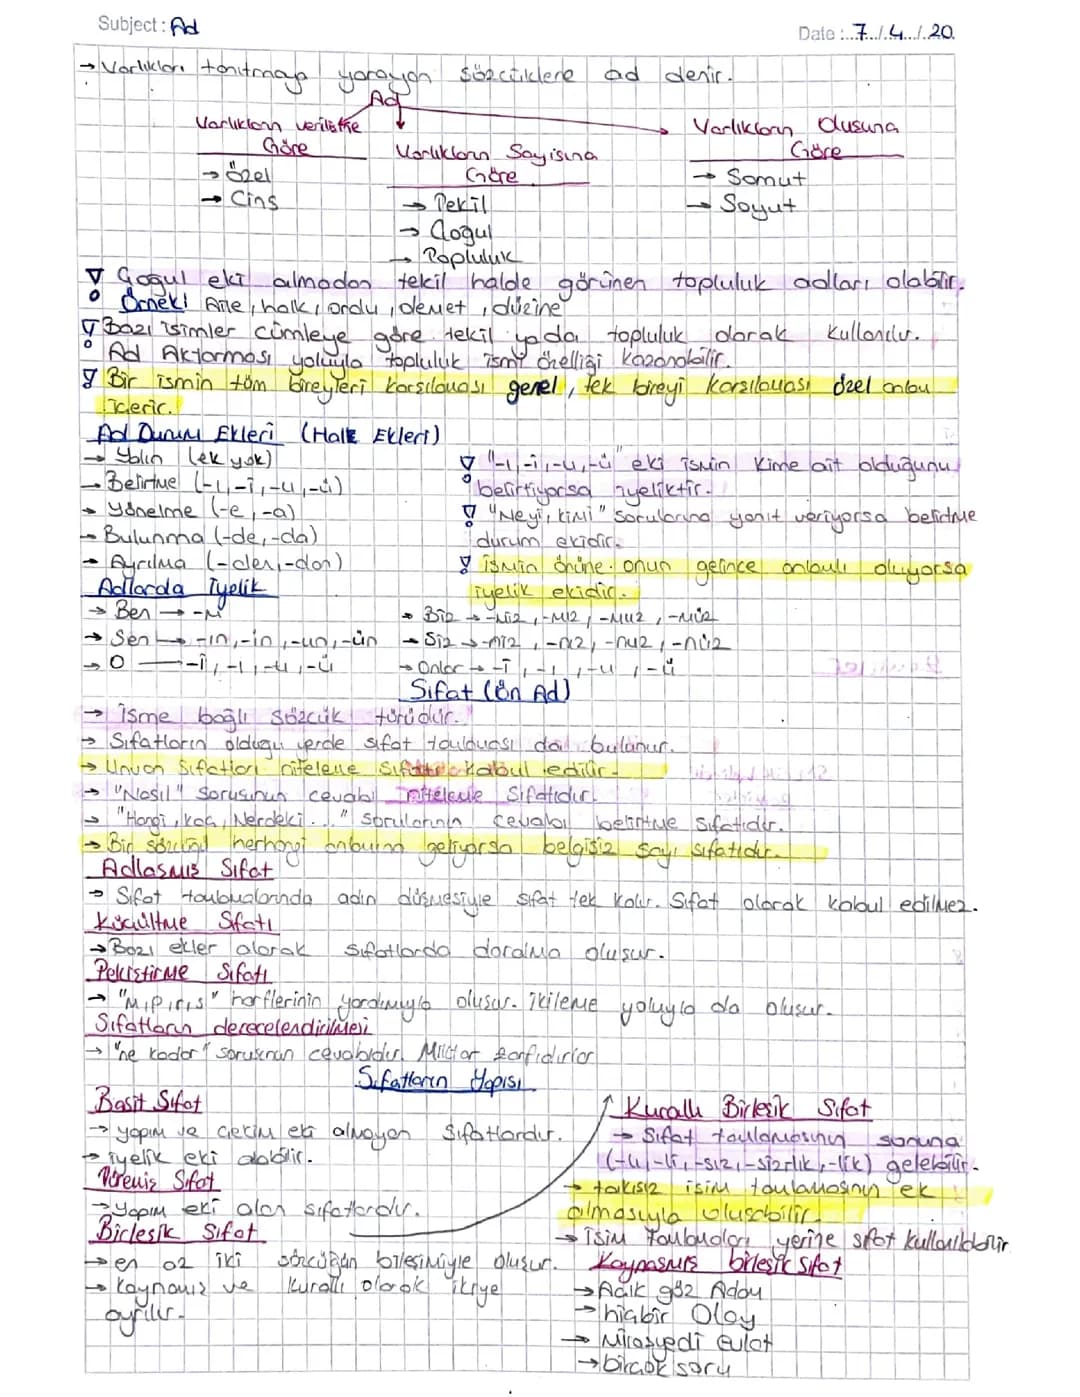 Subject: Ad
Date: 7/4/20
→ Varlıkları tanıtmap yarayan sözcüklere ad denir.
Ad
Varlıkların verilişine Göre
→ Özel
→ Cins
Varlıkların Sayısına Göre
→ Tekil
→ Çoğul
→ Topluluk
Varlıkların Oluşuna Göre
→ Somut
→ Soyut
Çoğul eki almadan tekil halde görünen topluluk adları olabilir.
Örnek! Aile, halk, ordu, demet, düzine
Bazı isimler cümleye göre tekil yada topluluk olarak kullanılır.
Ad Aktarması yoluyla topluluk ismi özelliği kazanabilir.
Bir ismin tüm bireyleri karşılaması genel, tek bireyi karşılaması özel anlam
içerir.
Ad Durum Ekleri (Hal Ekleri)
→ Yalın (ek yok)
→ Belirtme (-ı, -i, -u, -ü)
→ Yönelme (-e, -a)
→ Bulunma (-de, -da)
→ Ayrılma (-den, -dan)
"-ı, -i, -u, -ü" eki ismin kime ait olduğunu
belirtiyorsa iyeliktir.
"Neyi, kimi" sorularına yanıt veriyorsa belirtme
durum ekidir.
ismin önüne onun gelince anlamlı oluyorsa
iyelik ekidir.
Adlarda İyelik
→ Ben → -m
→ Sen → -ın, -in, -un, -ün
→ O — -i, -ı, -u, -ü
→ Biz → -miz, -mız, -muz, -müz
→ Siz → -nız, -niz, -nuz, -nüz
→ Onlar → -i, -ı, -u, -ü
Sıfat (Ön Ad)
→ İsme bağlı sözcük türüdür.
→ Sıfatların olduğu yerde sıfat tamlaması da bulunur.
→ Unvan sıfatları niteleme sıfatı kabul edilir.
→ "Nasıl" sorusunun cevabı niteleme sıfatıdır.
→ "Hangi, kaç, Nerdeki..." sorularının cevabı belirtme sıfatıdır.
→ Bir sözcüğü herhangi anlamına geliyorsa belgisiz sayı sıfatıdır.
Adlaşmış Sıfat
→ Sıfat tamlamalarında adın düşmesiyle sıfat tek kalır. Sıfat olarak kabul edilmez.
Küçültme Sıfatı
→ Bazı ekler alarak sıfatlarda daralma oluşur.
Pekiştirme Sıfatı
→ "m, p, r, s" harflerinin yardımıyla oluşur. İkileme yoluyla da oluşur.
Sıfatların derecelendirilmesi
→ "ne kadar" sorusunun cevabıdır. Miktar zarfıdırlar
Sıfatların Yapısı
Basit Sıfat
→ yapım ve çekim eki almayan sıfatlardır.
→ iyelik eki alabilir.
Türemiş Sıfat
→ yapım eki alan sıfatlardır.
Birleşik Sıfat
→ en az iki sözcüğün bileşimiyle oluşur.
→ Kaynamış ve kurallı olarak ikiye
ayrılır.
Kurallı Birleşik Sıfat
→ Sıfat tamlamasının sonuna
(-lı, -li, -sız, -sizlik, -lik) gelebilir.
→ takısız isim tamlamasının ek
almasıyla oluşabilir.
→ isim Tamlamaları yerine sıfat kullanılabilir
Kaynaşmış birleşik sıfat
→ Açık göz Adam
→ hiçbir Olay
→ Mirasyedi evlat
→ birçok soru